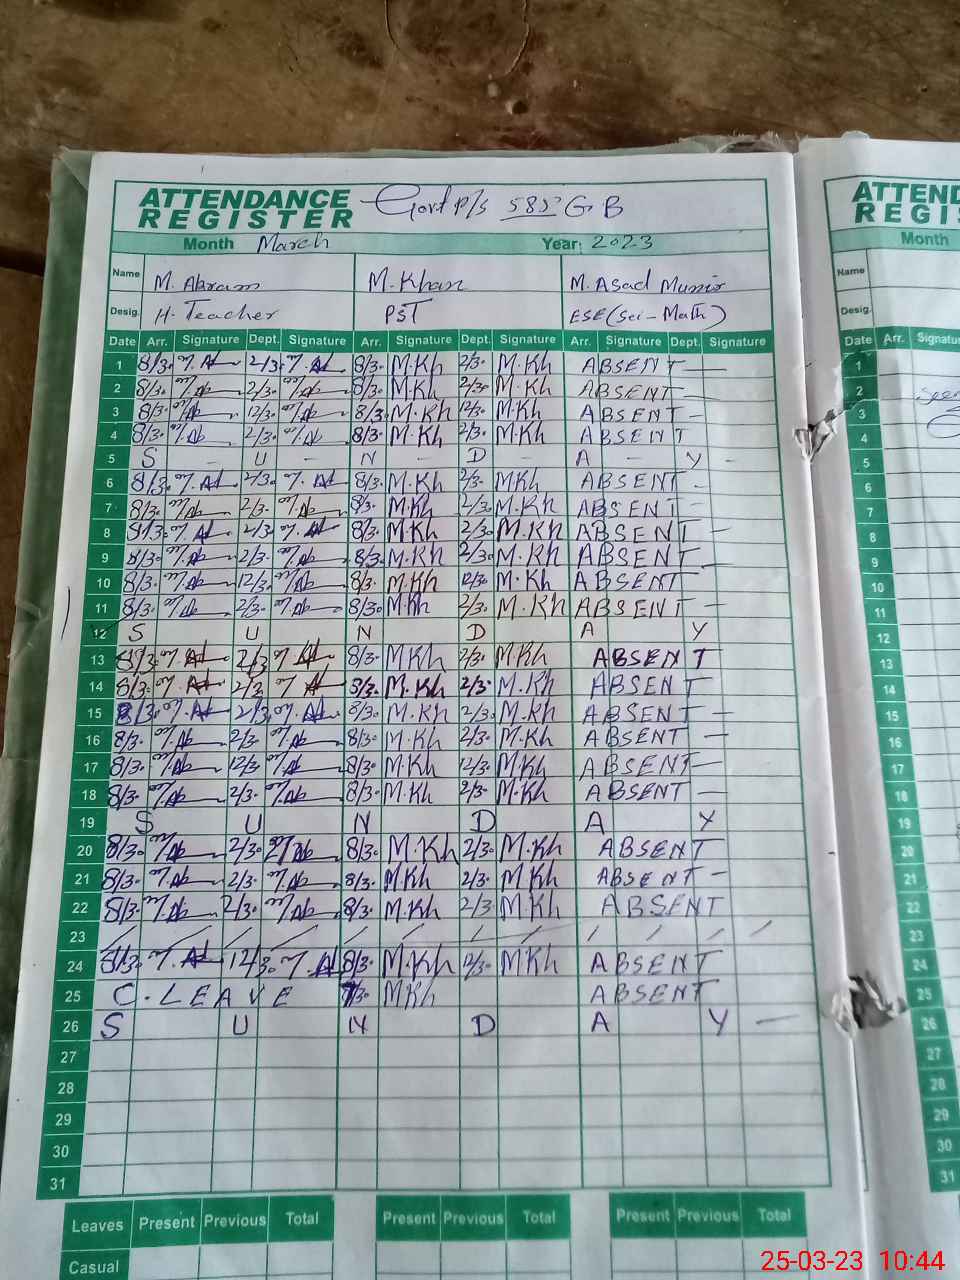 ATTENDANCE REGISTER Govt P/S 585 GB
Month March Year: 2023
Name M. Akram M. Khan M. Asad Munir
Desig. H. Teacher PST ESE (Sci - Math)
Date Arr. Signature Dept. Signature Arr. Signature Dept. Signature Arr. Signature Dept. Signature
1 8/30 2/30 8/30 M.Kh 2/30 M.Kh ABSENT —
2 8/30 2/30 8/30 M.Kh 2/30 M.Kh ABSENT —
3 8/30 12/30 8/30 M.Kh 12/30 M.Kh ABSENT —
4 8/30 2/30 8/30 M.Kh 2/30 M.Kh ABSENT
5 S — U — N — D — A — Y —
6 8/30 2/30 8/30 M.Kh 2/30 MKh ABSENT —
7 8/30 2/30 8/30 M.Kh 2/30 M.Kh ABSENT —
8 8/30 2/30 8/30 M.Kh 2/30 M.Kh ABSENT —
9 8/30 2/30 8/30 M.Kh 2/30 M.Kh ABSENT —
10 8/30 12/30 8/30 M.Kh 12/30 M.Kh ABSENT
11 8/30 2/30 8/30 M.Kh 2/30 M.Kh ABSENT —
12 S U N D A Y
13 8/30 2/30 8/30 MKh 2/30 MKh ABSENT
14 8/30 2/30 8/30 M.Kh 2/30 M.Kh ABSENT
15 8/30 2/30 8/30 M.Kh 2/30 M.Kh ABSENT —
16 8/30 2/30 8/30 M.Kh 2/30 M.Kh ABSENT —
17 8/30 12/30 8/30 M.Kh 12/30 M.Kh ABSENT —
18 8/30 2/30 8/30 M.Kh 2/30 M.Kh ABSENT —
19 S U N D A Y
20 8/30 2/30 8/30 M.Kh 2/30 M.Kh ABSENT
21 8/30 2/30 8/30 M.Kh 2/30 M.Kh ABSENT —
22 8/30 2/30 8/30 M.Kh 2/30 M.Kh ABSENT
23 / / / / / / / / / / / /
24 8/30 12/30 8/30 M.Kh 12/30 MKh ABSENT
25 C. LEAVE 7/30 MKh ABSENT
26 S U N D A Y —
27
28
29
30
31
Leaves Present Previous Total Present Previous Total Present Previous Total
Casual
ATTEND
REGIS
Month
Name
Desig.
Date Arr. Signatu
1
2
3
4
5
6
7
8
9
10
11
12
13
14
15
16
17
18
19
20
21
22
23
24
25
26
27
28
29
30
31
25-03-23 10:44